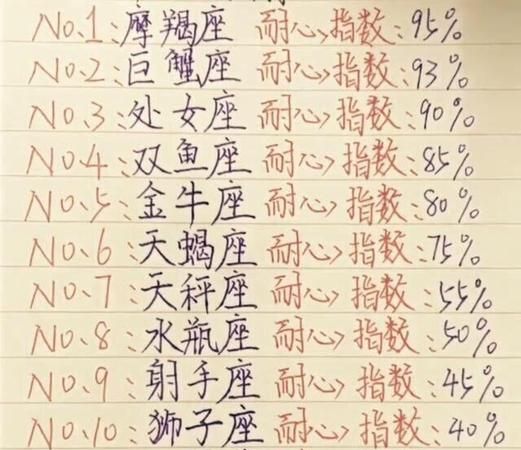 No.1:摩羯座 耐心指数:95%
No.2:巨蟹座 耐心指数:93%
No.3:处女座 耐心指数:90%
No.4:双鱼座 耐心指数:85%
No.5:金牛座 耐心指数:80%
No.6:天蝎座 耐心指数:75%
No.7:天秤座 耐心指数:55%
No.8:水瓶座 耐心指数:50%
No.9:射手座 耐心指数:45%
No.10:狮子座 耐心指数:40%